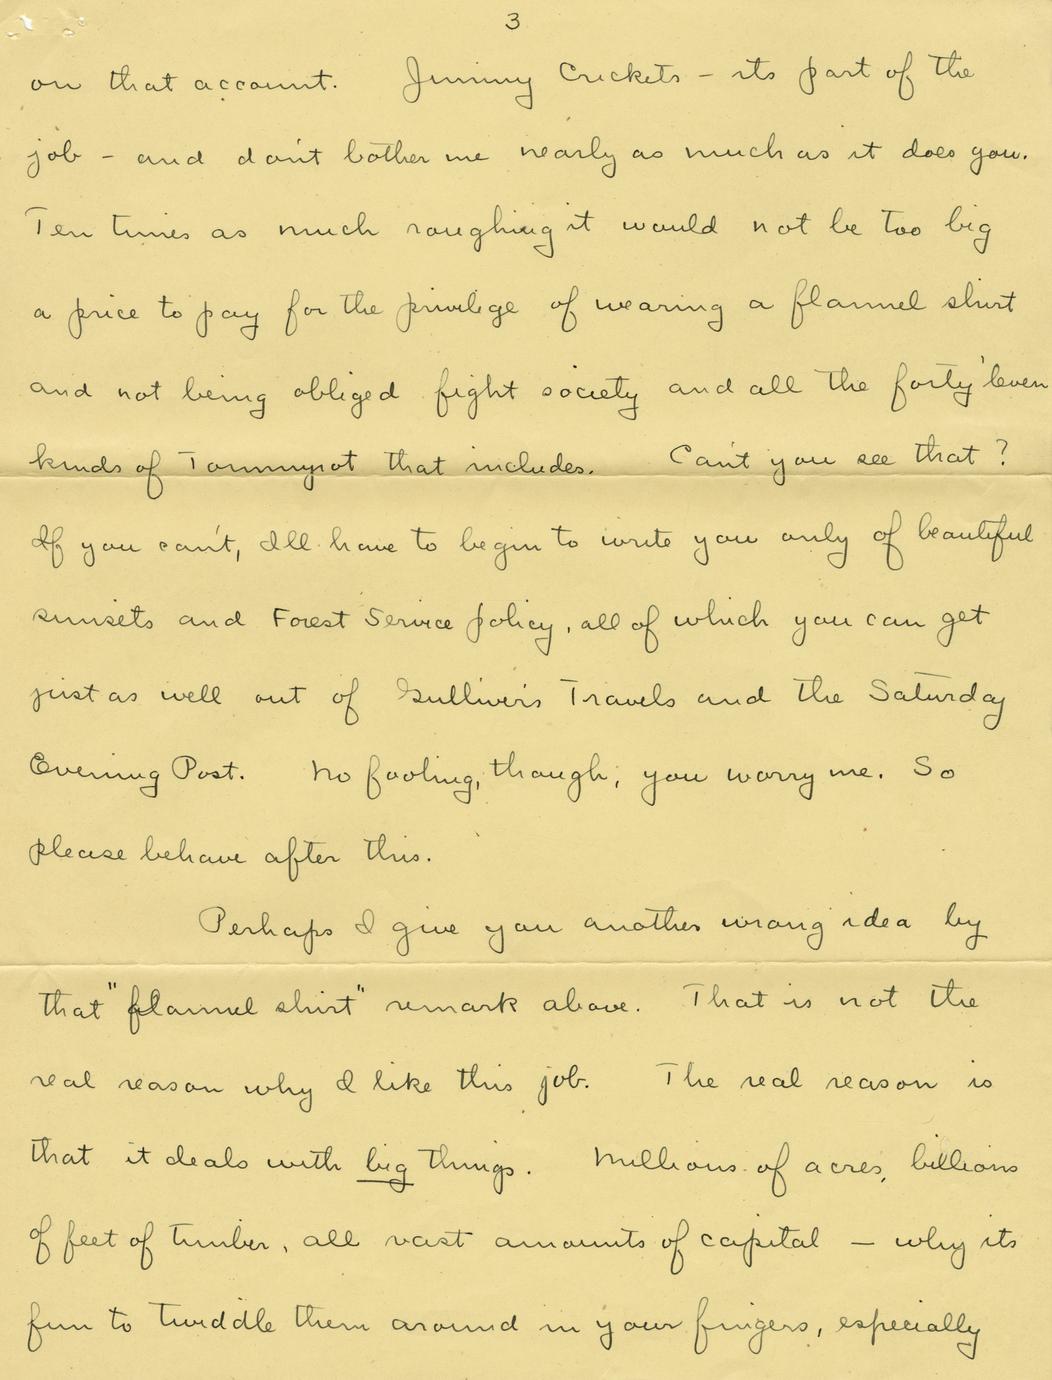 3
on that account. Jimmy Crickets - its part of the
job - and don't bother me nearly as much as it does you.
Ten times as much roughing it would not be too big
a price to pay for the privilege of wearing a flannel shirt
and not being obliged fight society and all the forty'leven
kinds of Tommyrot that includes. Can't you see that?
If you can't, I'll have to begin to write you only of beautiful
sunsets and Forest Service policy, all of which you can get
just as well out of Gulliver's Travels and the Saturday
Evening Post. No fooling, though, you worry me. So
please behave after this.
Perhaps I give you another wrong idea by
that "flannel shirt" remark above. That is not the
real reason why I like this job. The real reason is
that it deals with big things. Millions of acres, billions
of feet of timber, all vast amounts of capital - why its
fun to twiddle them around in your fingers, especially